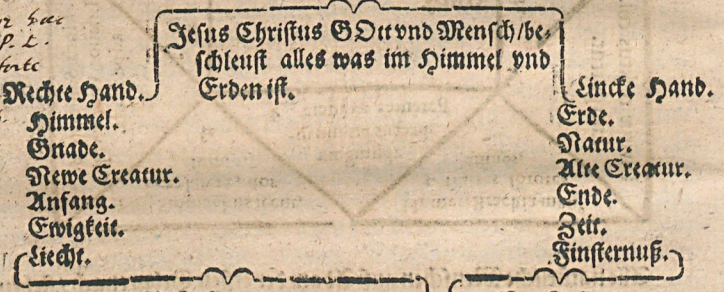 Jesus Christus GOtt vnd Mensch/be-
schleust alles was im Himmel vnd
Erden ist.
Rechte Hand.
Himmel.
Gnade.
Newe Creatur.
Anfang.
Ewigkeit.
Liecht.
Lincke Hand.
Erde.
Natur.
Alte Creatur.
Ende.
Zeit.
Finsternuß.